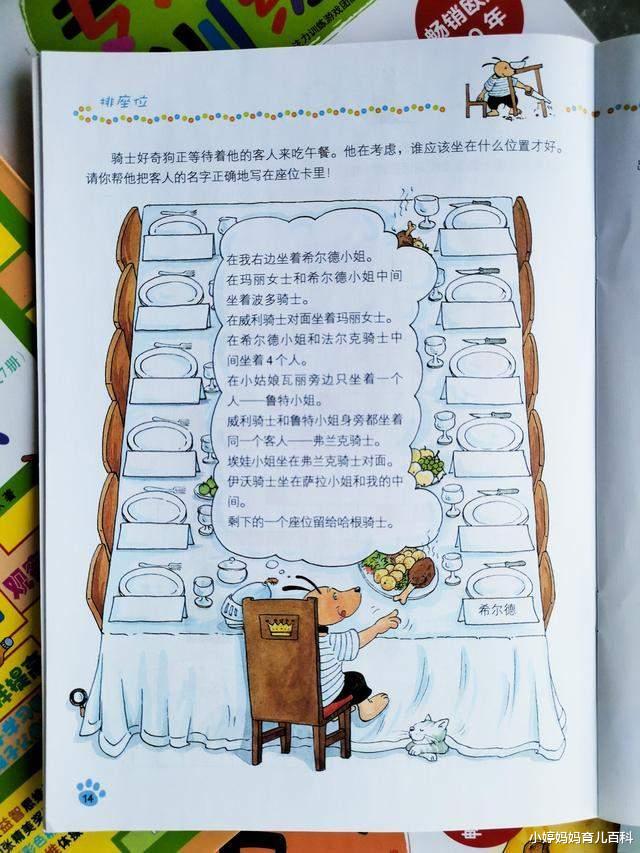 畅销欧
0年
力训练游戏团
排座位
骑士好奇狗正等待着他的客人来吃午餐。他在考虑，谁应该坐在什么位置才好。
请你帮他把客人的名字正确地写在座位卡里！
在我右边坐着希尔德小姐。
在玛丽女士和希尔德小姐中间
坐着波多骑士。
在威利骑士对面坐着玛丽女士。
在希尔德小姐和法尔克骑士中
间坐着4个人。
在小姑娘瓦丽旁边只坐着一个
人——鲁特小姐。
威利骑士和鲁特小姐身旁都坐着
同一个客人——弗兰克骑士。
埃娃小姐坐在弗兰克骑士对面。
伊沃骑士坐在萨拉小姐和我的中
间。
剩下的一个座位留给哈根骑士。
希尔德
14
7册)
小婷妈妈育儿百科